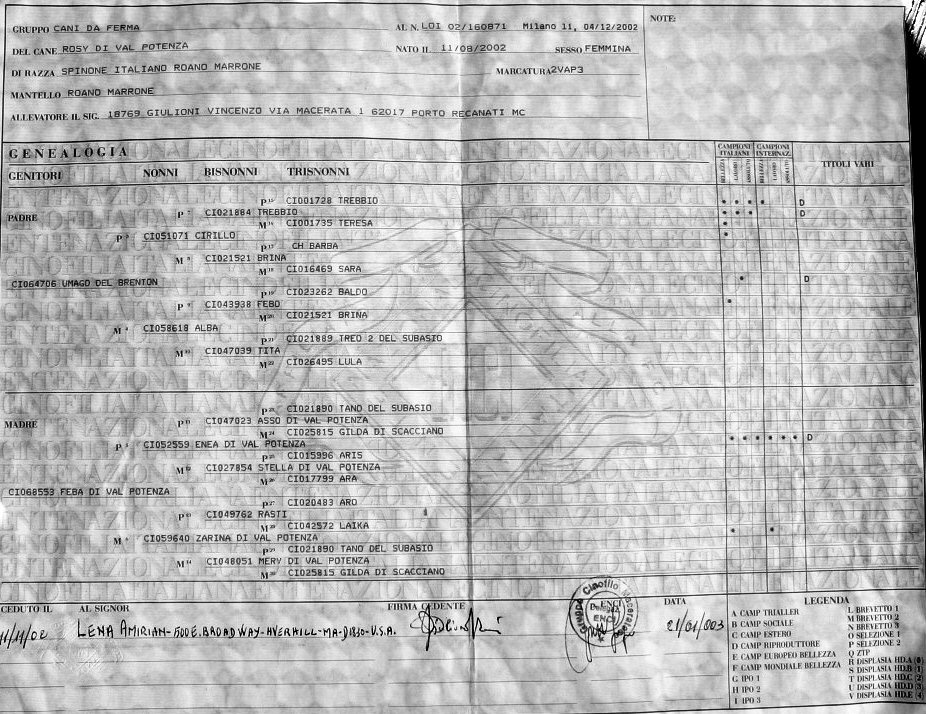 GRUPPO CANI DA FERMA AL N. LOI 02/160871 Milano 11, 04/12/2002 NOTE:
DEL CANE ROSY DI VAL POTENZA NATO IL 11/08/2002 SESSO FEMMINA
DI RAZZA SPINONE ITALIANO ROANO MARRONE MARCATURA 2VAP3
MANTELLO ROANO MARRONE
ALLEVATORE IL SIG. 18769 GIULIONI VINCENZO VIA MACERATA 1 62017 PORTO RECANATI MC
GENEALOGIA CAMPIONI ITALIANI CAMPIONI INTERNAZ.
GENITORI NONNI BISNONNI TRISNONNI BELLEZZA LAVORO ASSOLUTO BELLEZZA LAVORO ASSOLUTO TITOLI VARI
P CI001728 TREBBIO * * * * D
PADRE P CI021884 TREBBIO * * * D
M CI001735 TERESA *
P CI051071 CIRILLO *
P CH BARBA
M CI021521 BRINA
M CI016469 SARA
CI064706 UMAGO DEL BRENTON * D
P CI023262 BALDO
P CI043938 FEBO *
M CI021521 BRINA
M CI058618 ALBA
P CI021889 TREO 2 DEL SUBASIO
M CI047039 TITA
M CI026495 LULA
P CI021890 TANO DEL SUBASIO
MADRE P CI047023 ASSO DI VAL POTENZA
M CI025815 GILDA DI SCACCIANO
P CI052559 ENEA DI VAL POTENZA * * * * * * D
P CI015996 ARIS
M CI027854 STELLA DI VAL POTENZA
M CI017799 ARA
CI068553 FEBA DI VAL POTENZA
P CI020483 ARO
P CI049762 RASTI
M CI042572 LAIKA
M CI059640 ZARINA DI VAL POTENZA * *
P CI021890 TANO DEL SUBASIO
M CI048051 MERV DI VAL POTENZA
M CI025815 GILDA DI SCACCIANO
CEDUTO IL AL SIGNOR FIRMA CEDENTE ENCI DATA LEGENDA
11/11/02 LENA AMIRIAN - 500E. BROADWAY - AVERHILL - MA - 01830 - U.S.A. 21/01/003
Gruppo Cinofilo Maceratese
ENCI
A CAMP TRIALLER L BREVETTO 1
B CAMP SOCIALE M BREVETTO 2
C CAMP ESTERO N BREVETTO 3
D CAMP RIPRODUTTORE O SELEZIONE 1
E CAMP EUROPEO BELLEZZA P SELEZIONE 2
F CAMP MONDIALE BELLEZZA Q ZTP
G IPO 1 R DISPLASIA HD.A (0)
H IPO 2 S DISPLASIA HD.B (1)
I IPO 3 T DISPLASIA HD.C (2)
U DISPLASIA HD.D (3)
V DISPLASIA HD.E (4)